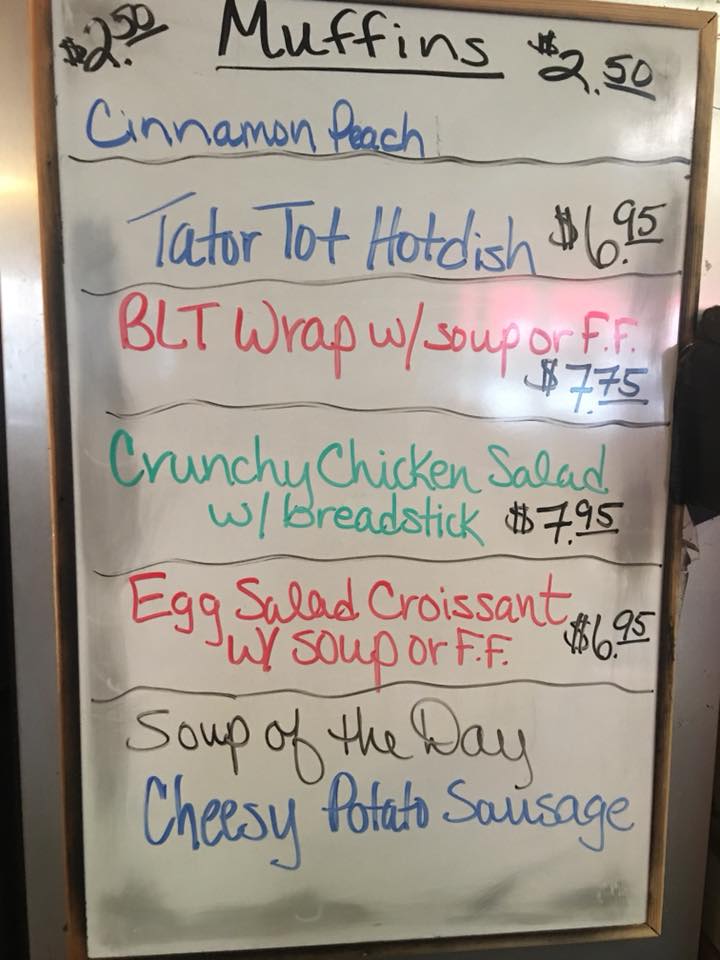 $2.50 Muffins $2.50
Cinnamon Peach
Tator Tot Hotdish $6.95
BLT Wrap w/soup or F.F.
$7.75
Crunchy Chicken Salad
w/ breadstick $7.95
Egg Salad Croissant
w/ soup or F.F. $6.95
Soup of the Day
Cheesy Potato Sausage